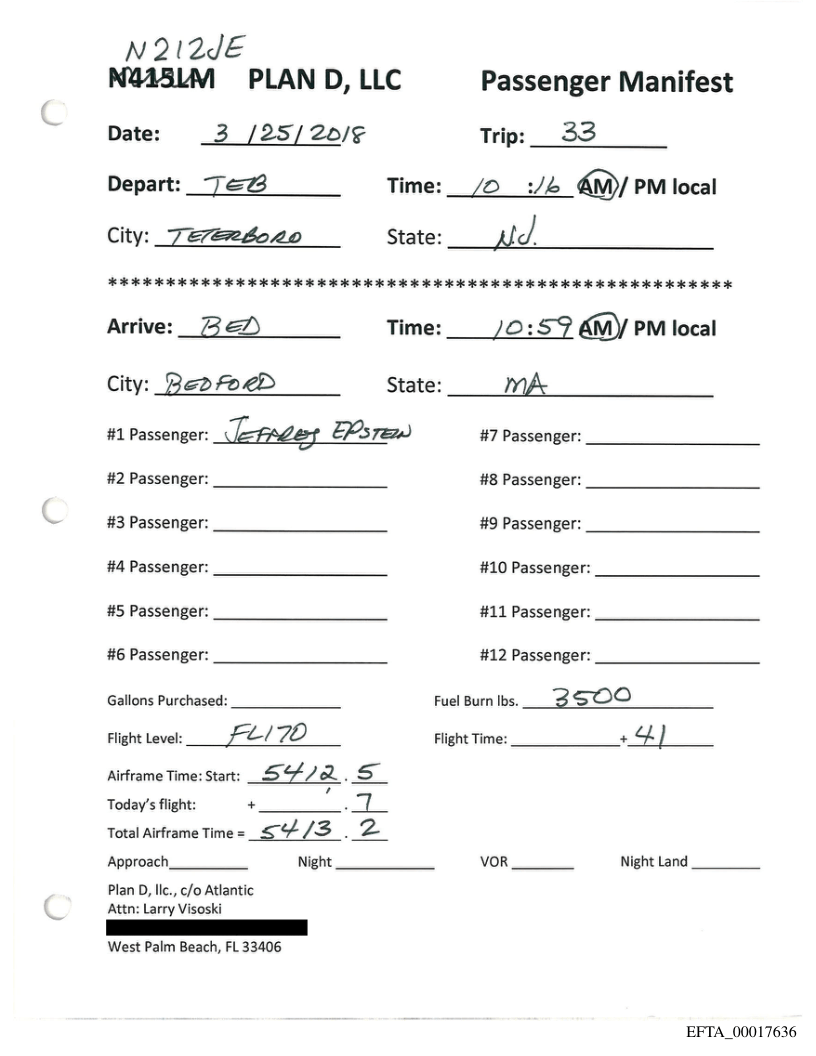 N212JE
N415LM PLAN D, LLC Passenger Manifest
Date: 3 /25/2018 Trip: 33
Depart: TEB Time: 10 :16 AM/ PM local
City: TETERBORO State: N.J.
******************************************************
Arrive: BED Time: 10:59 AM/ PM local
City: BEDFORD State: MA
#1 Passenger: JEFFREY EPSTEIN #7 Passenger:
#2 Passenger: #8 Passenger:
#3 Passenger: #9 Passenger:
#4 Passenger: #10 Passenger:
#5 Passenger: #11 Passenger:
#6 Passenger: #12 Passenger:
Gallons Purchased: Fuel Burn lbs. 3500
Flight Level: FL170 Flight Time: + 41
Airframe Time: Start: 5412 . 5
Today's flight: + . 7
Total Airframe Time = 5413 . 2
Approach Night VOR Night Land
Plan D, llc., c/o Atlantic
Attn: Larry Visoski
West Palm Beach, FL 33406
EFTA_00017636